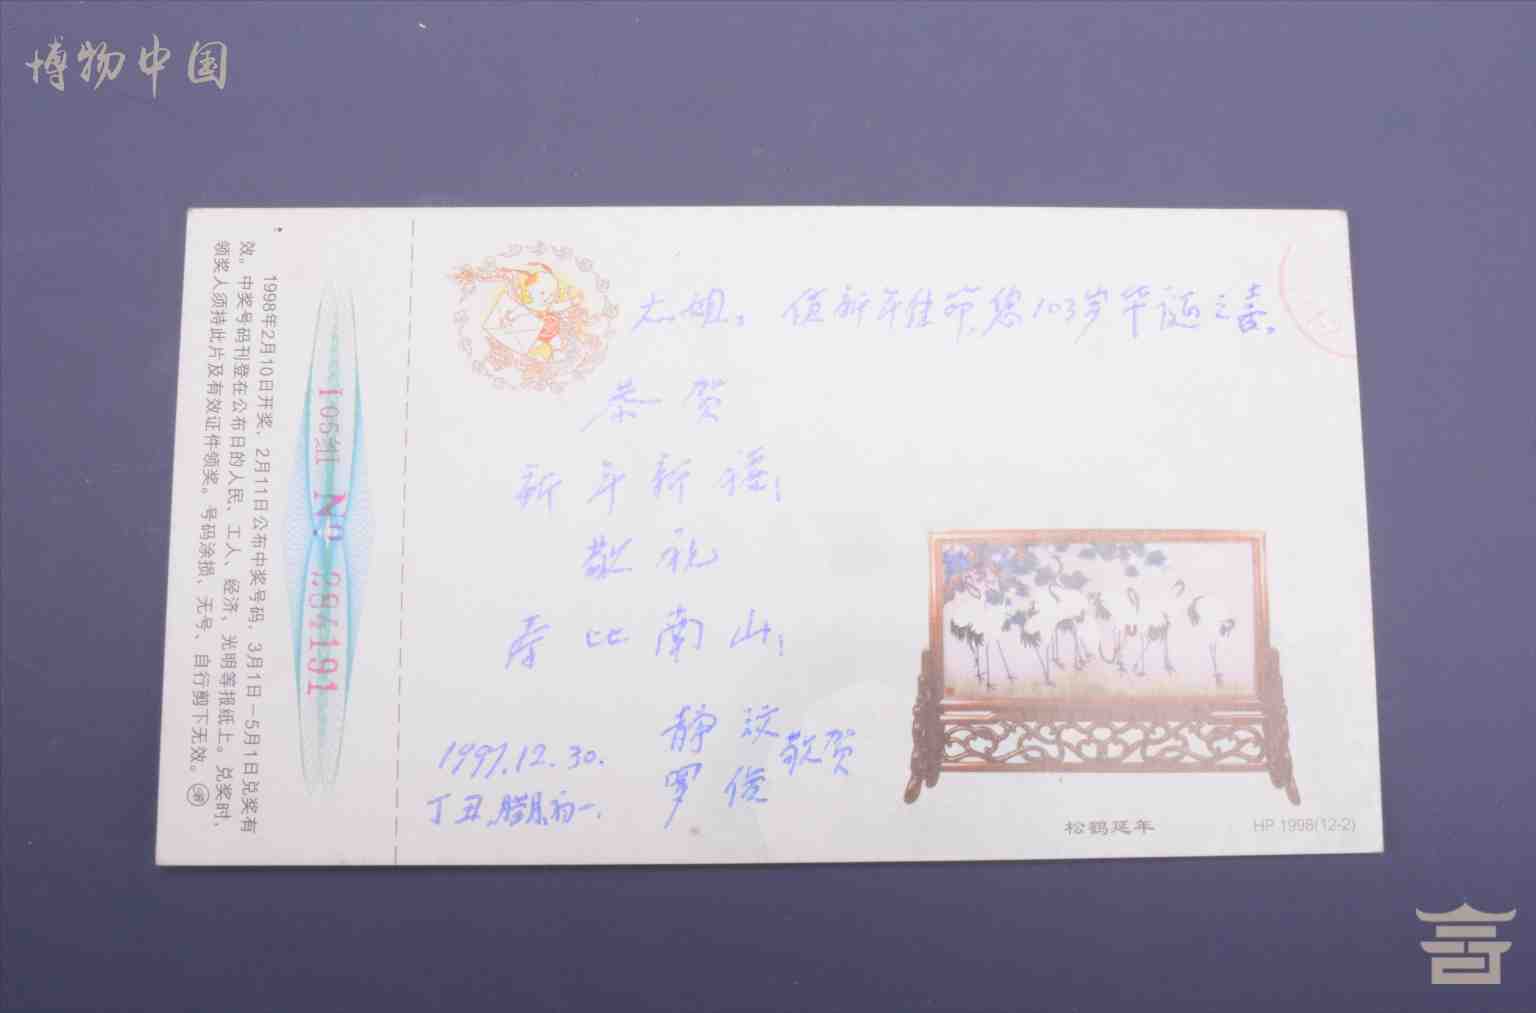 博物中国
1998年2月10日开奖，2月11日公布中奖号码，3月1日－5月1日兑奖有
效。中奖号码刊登在公布日的人民、工人、经济，光明等报纸上。兑奖时，
领奖人须持此片及有效证件领奖。号码涂损、无号、自行剪下无效。
I05组 № 284191
大姐。值新年佳节,您103岁华诞之喜。
恭贺
新年新禧！
敬祝
寿比南山！
静
罗俊
敬贺
1997.12.30.
丁丑.腊月初一.
松鹤延年
HP 1998(12-2)